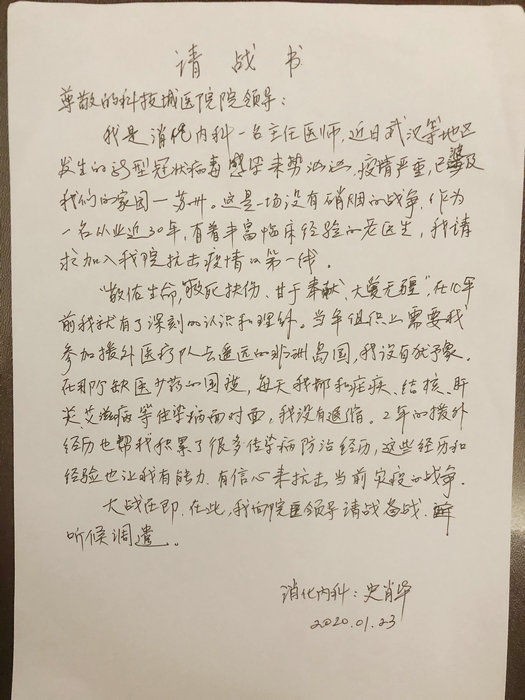 请战书
尊敬的科技城医院院领导：
我是消化内科一名主任医师，近日武汉等地区
发生的新型冠状病毒感染来势汹汹，疫情严重，已波及
我们的家园一苏州。这是一场没有硝烟的战争，作为
一名从业近30年，有着丰富临床经验的老医生，我请
求加入我院抗击疫情的第一线。
"敬佑生命，救死扶伤、甘于奉献、大爱无疆"，在10年
前我就有了深刻的认识和理解。当年组织上需要我
参加援外医疗队去遥远的非洲岛国，我没有犹豫。
在那个缺医少药的国境，每天我都和疟疾、结核、肝
炎艾滋病等传染病面对面，我没有退缩。2年的援外
经历也帮我积累了很多传染病防治经历，这些经历和
经验也让我有能力、有信心来抗击当前灾疫的战争。
大战在即，在此，我向院领导请战备战、
听候调遣。
消化内科：史肖华
2020.01.23